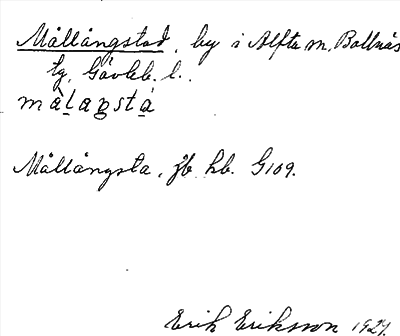 Mållångstad, by i Alfta m, Bollnäs
tg, Gävleb. l..
màlaŋstá
Mållångsta, jb hb. G109.
Erik Eriksson 1927.